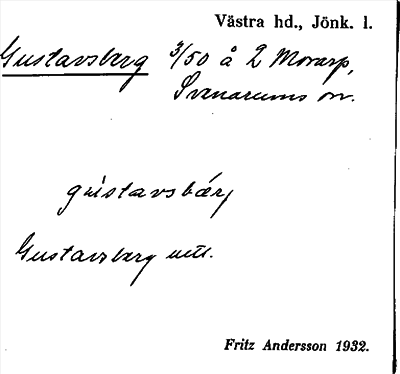 Västra hd., Jönk. l.
Gustavsberg 3/50 å 2 Morarp,
Svenarums sn.
gustavsbærj
Gustavsberg utt.
Fritz Andersson 1932.